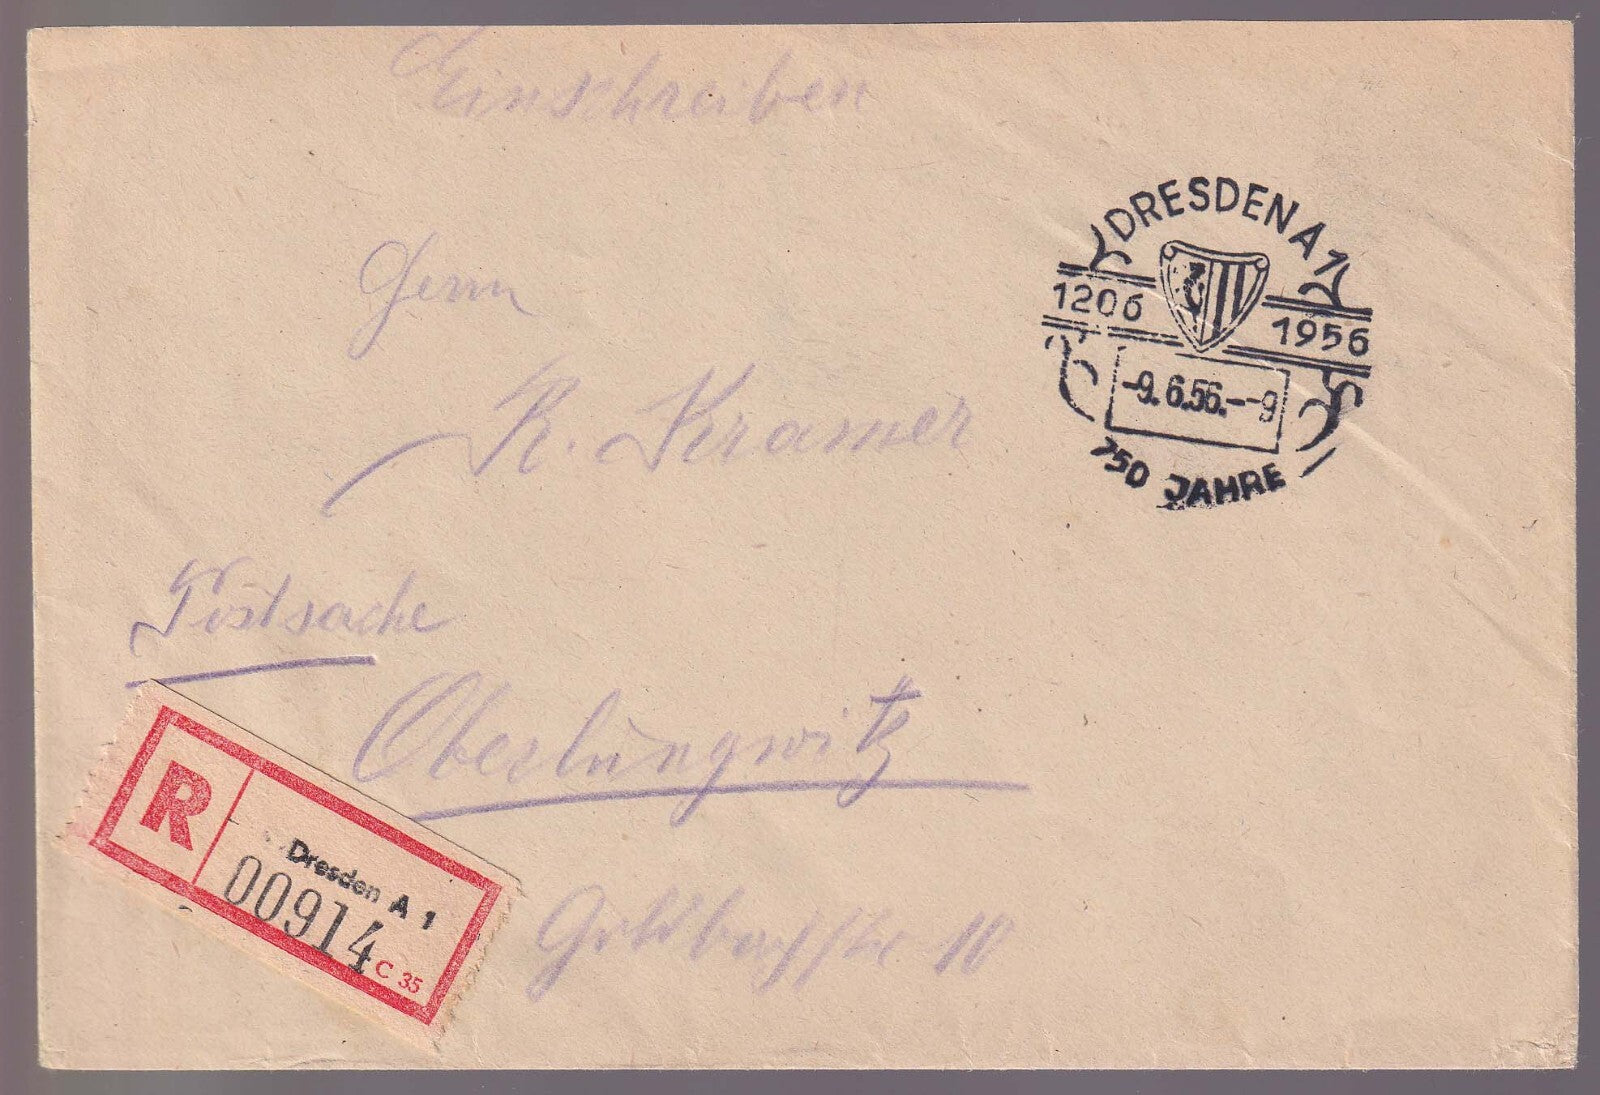 Einschreiben
DRESDEN A 1
1206 1956
-9.6.56.--9
750 JAHRE
Herrn
R. Kramer
Postsache
Oberlungwitz
R
Dresden A 1
00914
C 35
10